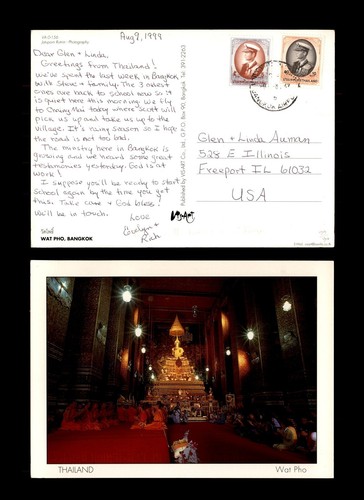 Aug 9, 1999
Dear Glen + Linda,
Greetings from Thailand!
we've spent the last week in Bangkok
with Steve + family. The 3 oldest
ones are back to school now so it
is quiet here this morning. We fly
to Chiang Mai today where Scott will
pick us up and take us up to the
village. It's rainy season so I hope
the road is not too bad.
The ministry here in Bangkok is
growing and we heard some great
testimonies yesterday. God is at
work!
I suppose you'll be ready to start
school again by the time you get
this. Take care + God bless!
We'll be in touch.
Love
Evelyn +
WAT PHO, BANGKOK
Published by VISART Co., Ltd.
Glen + Linda Auman
528 E Illinois
Freeport IL 61032
USA
THAILAND
Wat Pho